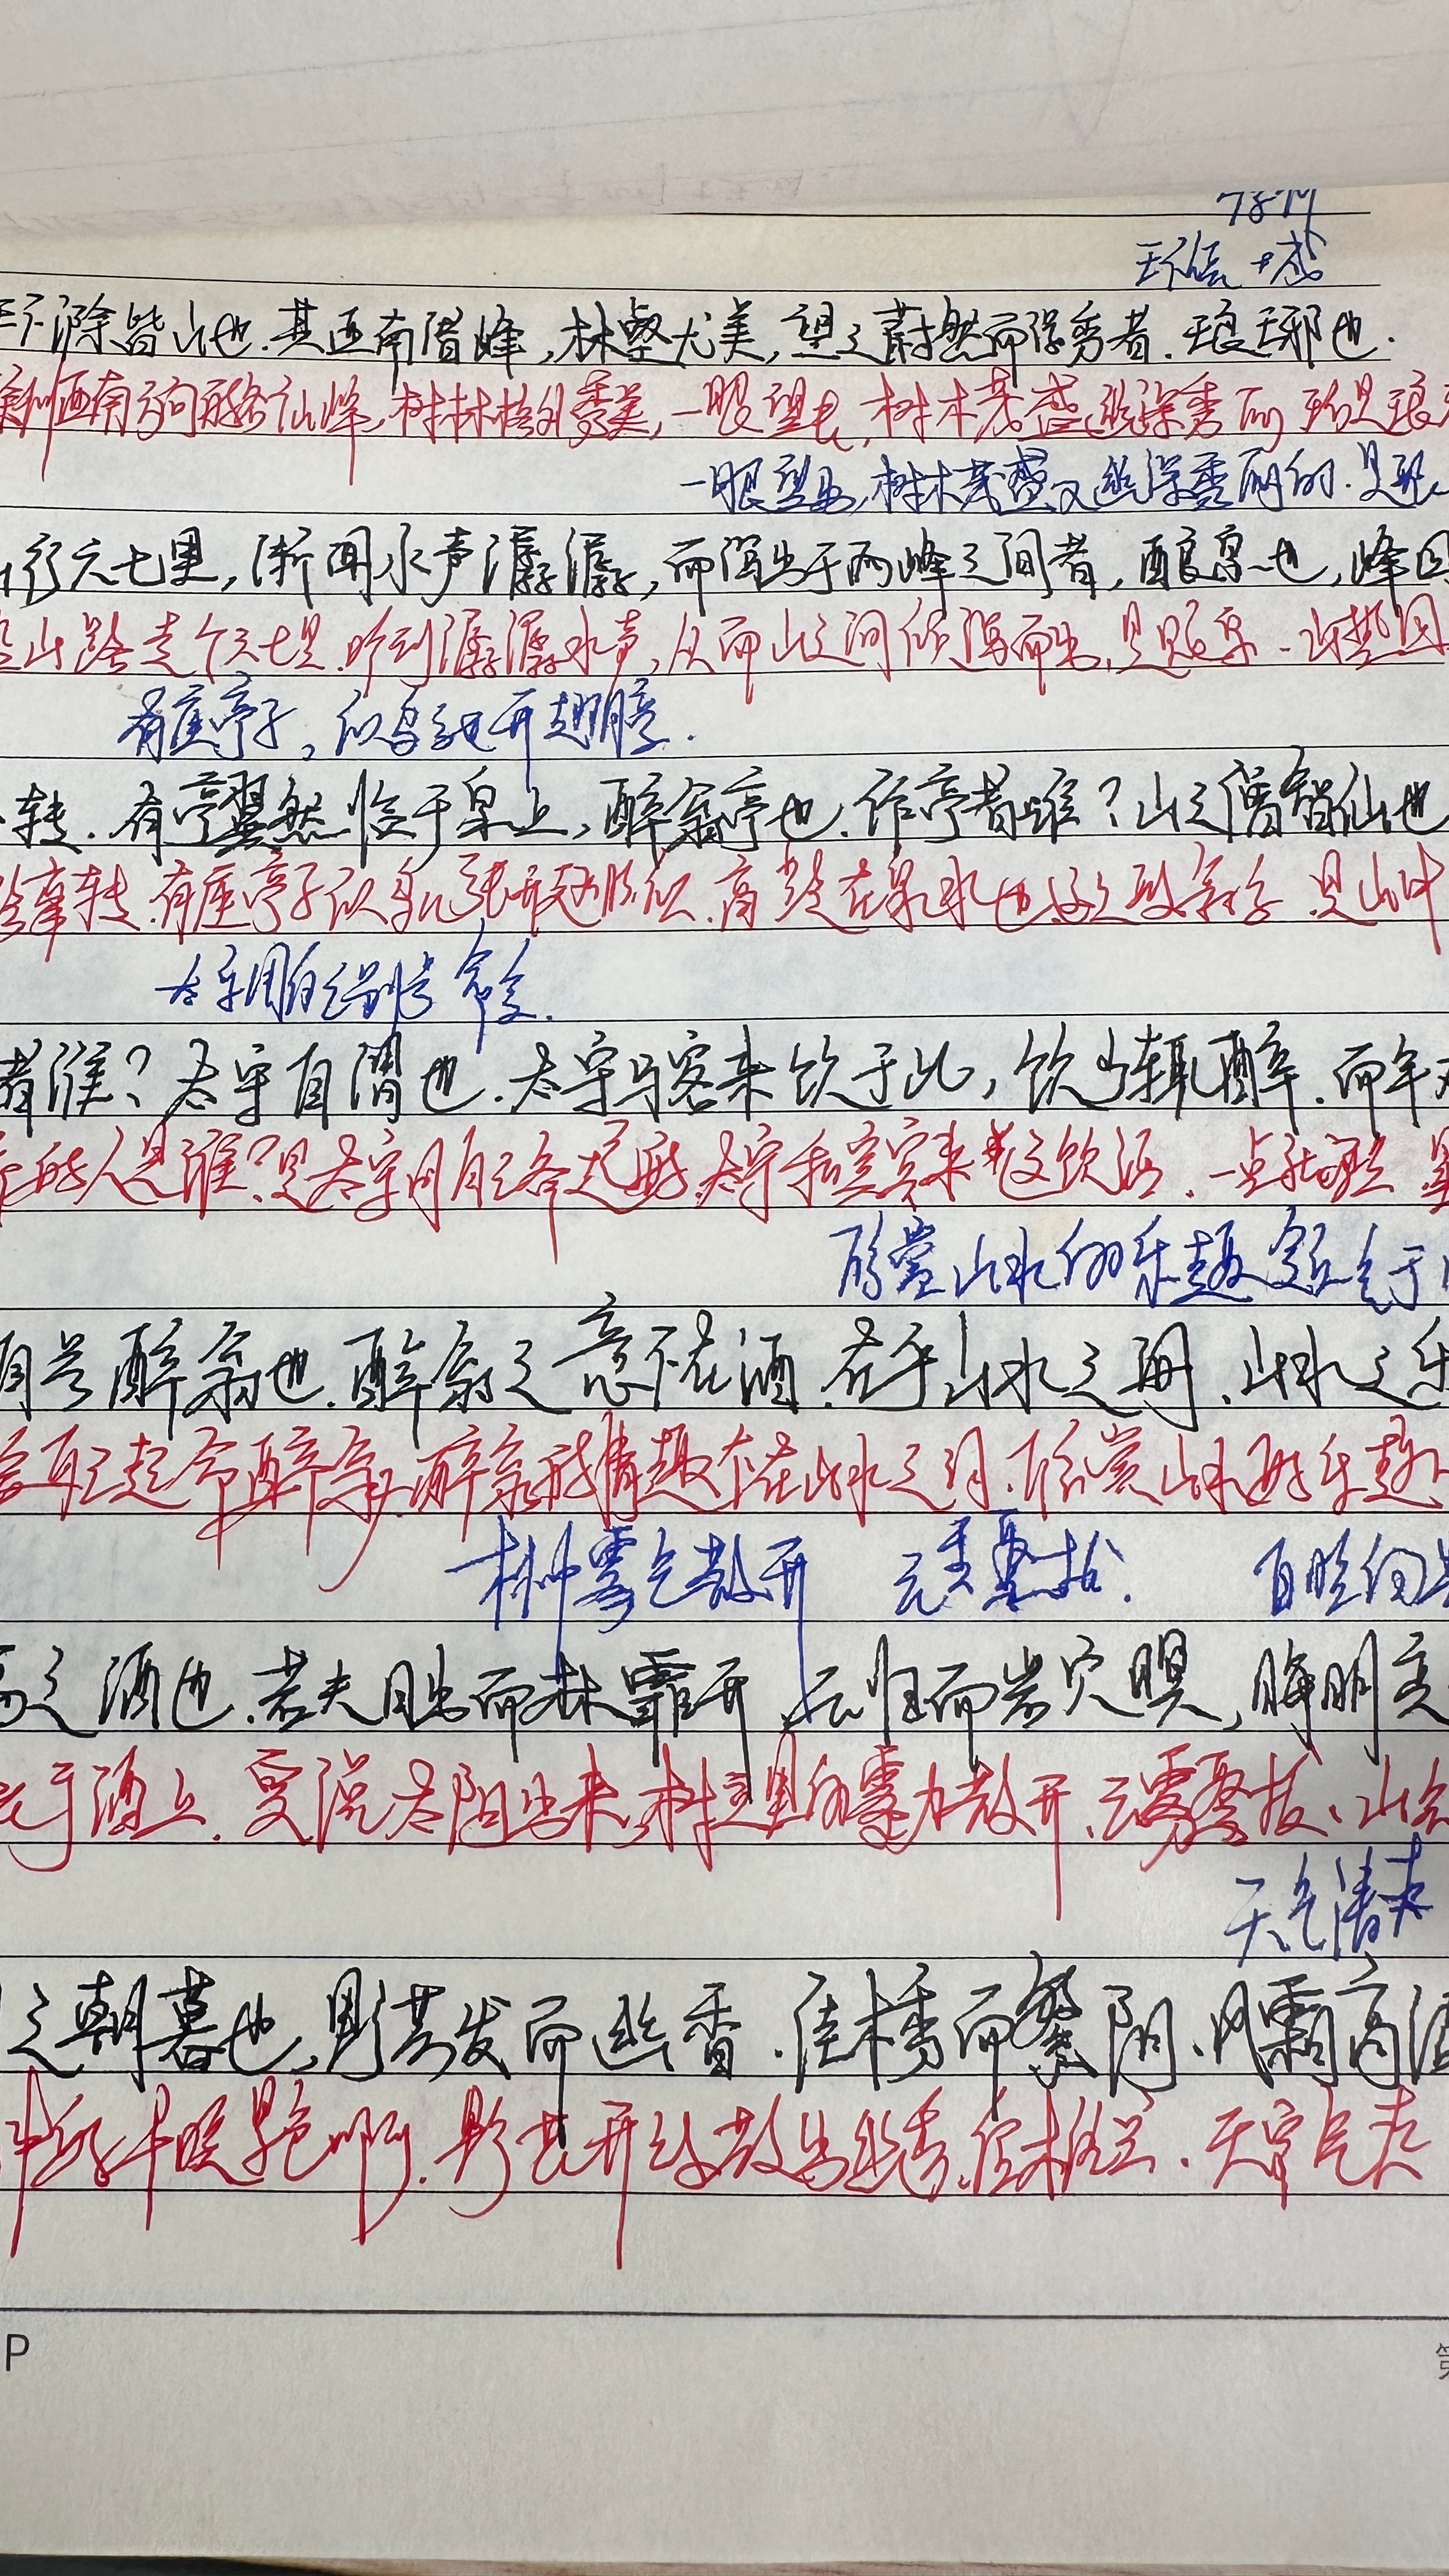 环滁皆山也.其西南诸峰,林壑尤美,望之蔚然而深秀者.琅琊也.
西南方向的各個山峰,树林格外秀美,一眼望去,树木茂盛幽深秀丽的是琅
一眼望去,树木茂盛又幽深秀丽的.是琅
行六七里,渐闻水声潺潺,而泻出于两峰之间者,酿泉也,峰回
山路走个六七里.听到潺潺水声,从两山之间倾泻而出,是酿泉.山势回
有座亭子,似鸟张开翅膀.
转.有亭翼然临于泉上,醉翁亭也.作亭者谁?山之僧智仙也
拿转.有座亭子似鸟张开翅膀似.高
太守用自己别号命名.
者谁?太守自谓也.太守与客来饮于此,饮少辄醉.而年
的人是谁?是太守用自己命名的.太守和宾客来这饮酒.一点就醉
欣赏山水的乐趣 寄托于
自号醉翁也.醉翁之意不在酒.在乎山水之间.山水之乐
自己起命醉翁.醉翁的情趣不在山水之间.欣赏山水的乐趣
林中雾气散开 云雾聚拢. 自暗向
之酒也.若夫日出而林霏开.云归而岩穴暝,晦明变
于酒上.要说太阳出来,树林里的雾力散开.云雾聚拢.山
天气清爽
之朝暮也,野芳发而幽香.佳木秀而繁阴.风霜高洁
早晚景色啊.野花开 散出幽香.
P
第